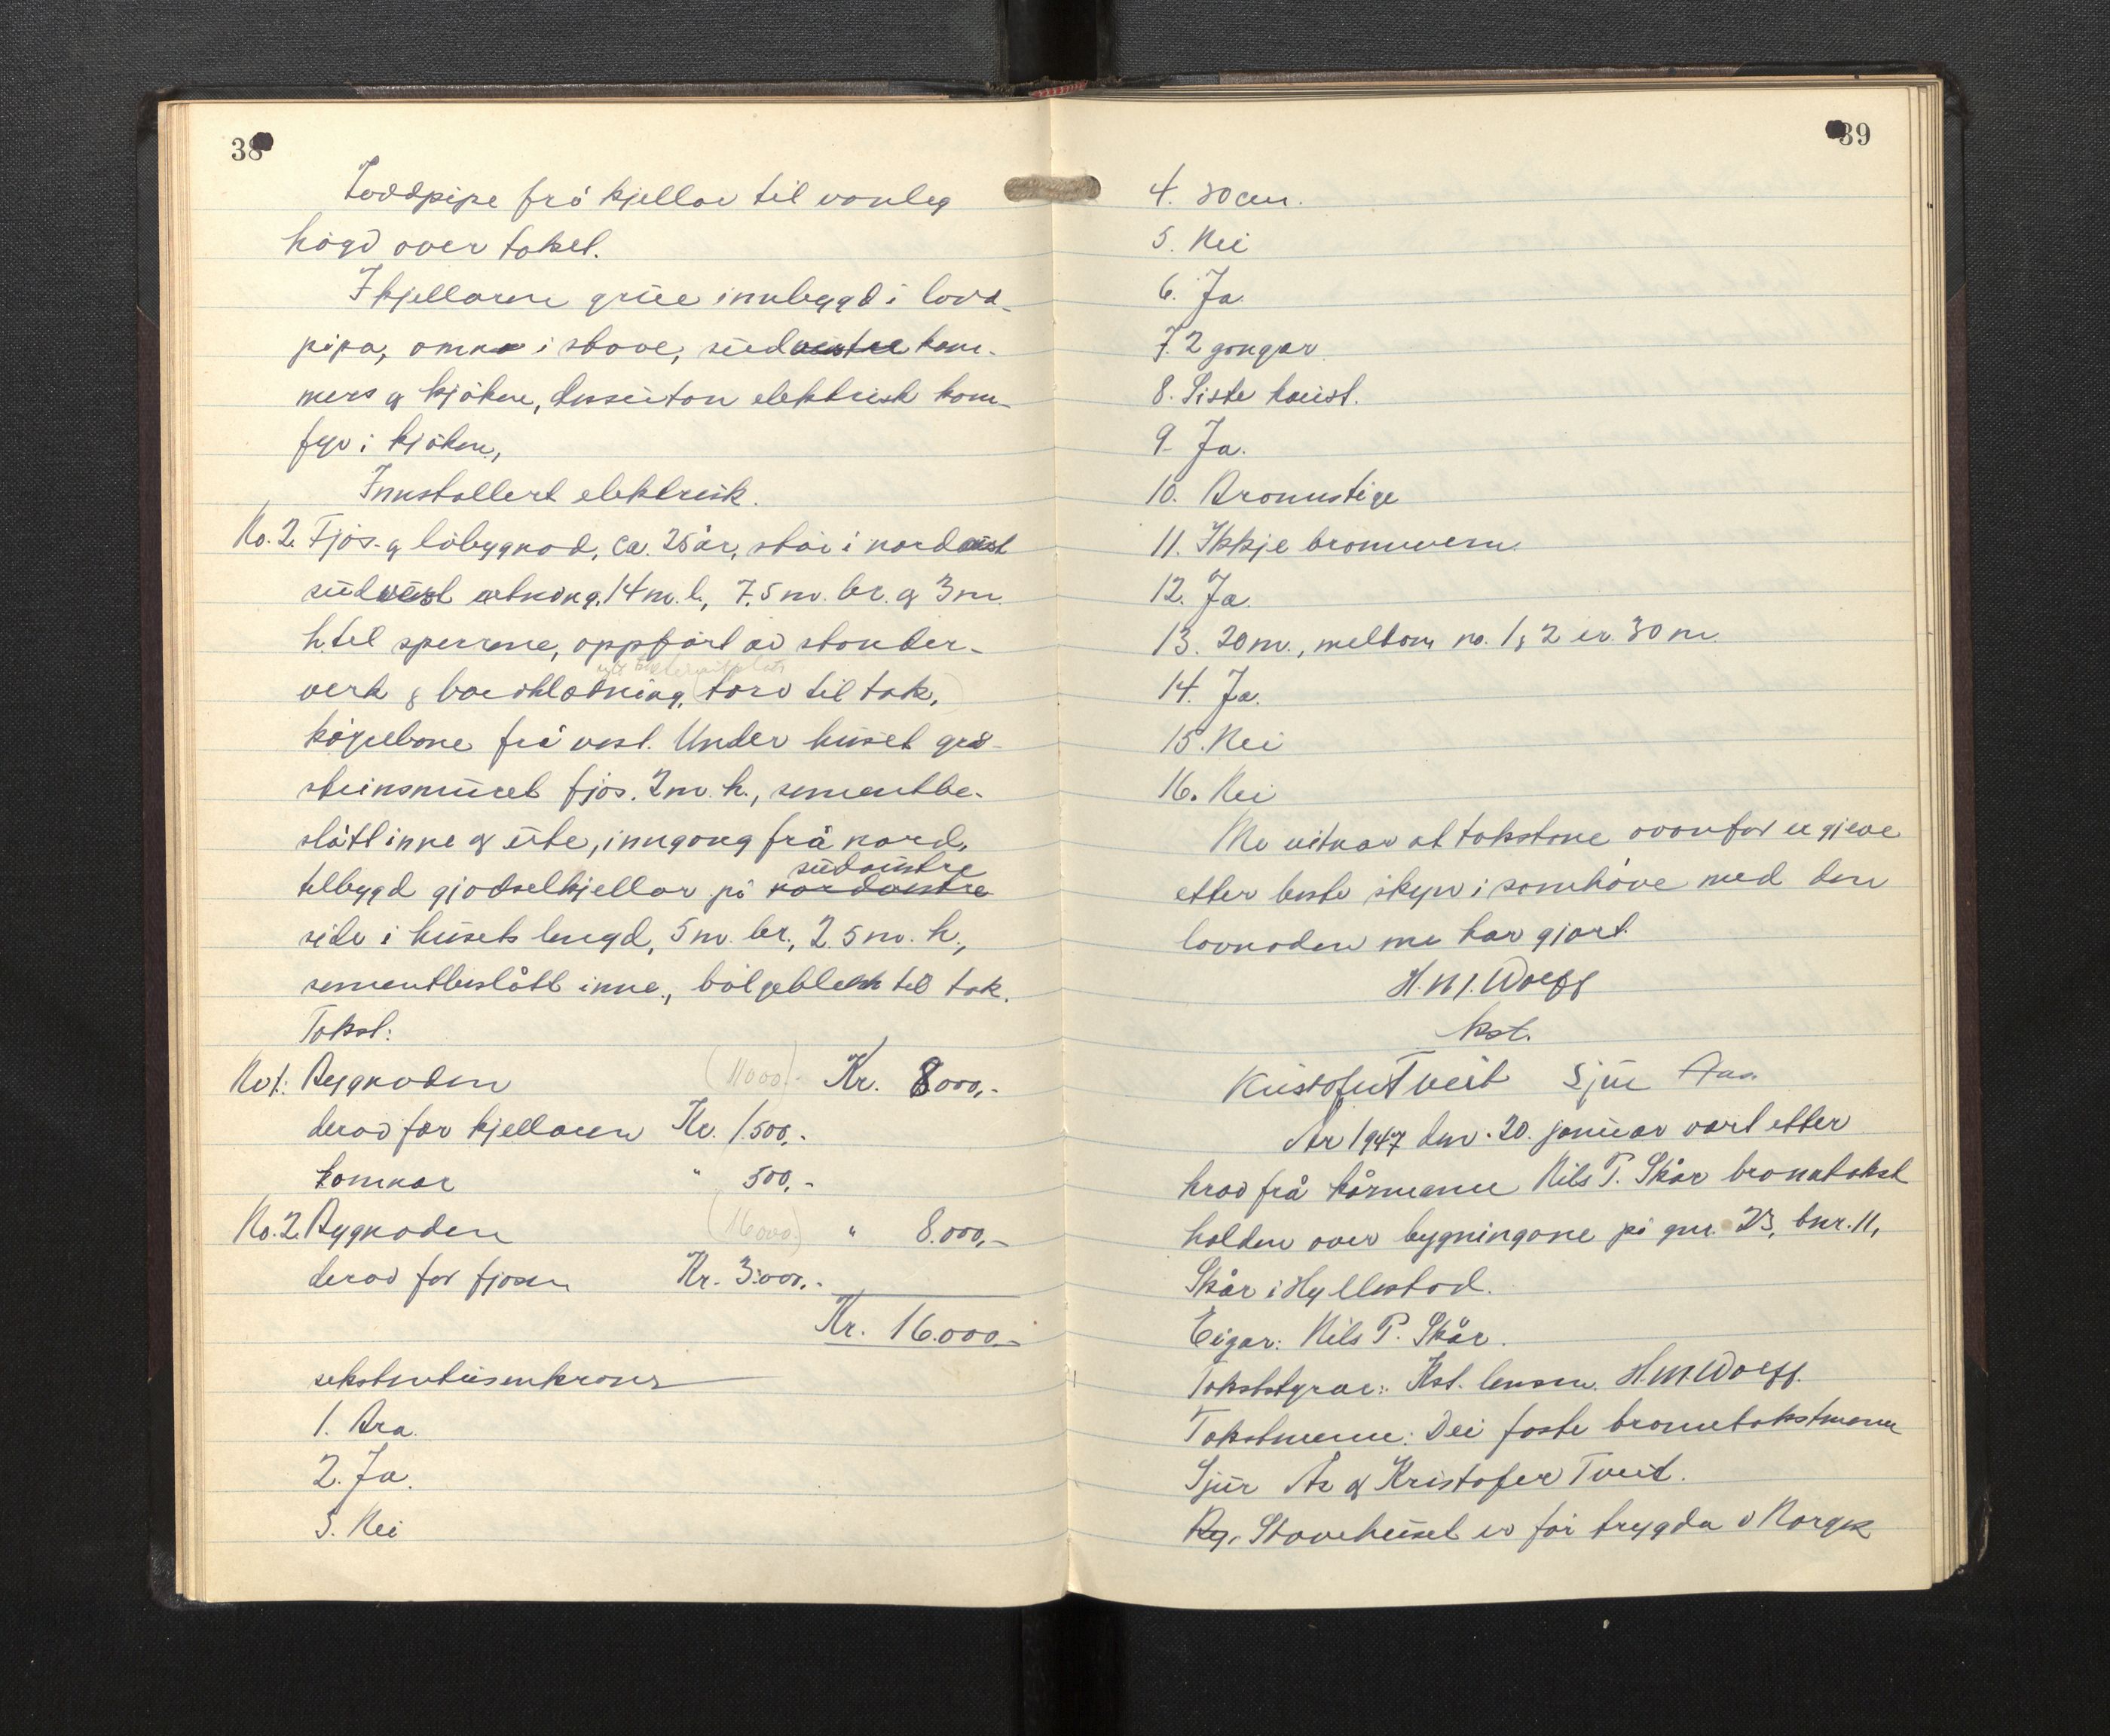 38
Loddpipe frå kjellar til vanleg
högd over taket.
I kjellaren grue innbygd i lodd-
pipa, omnar i stove, sud kam-
mers og kjöken, dessutan elektrisk kom-
fyr i kjöken,
Innstallert elektrisk.
No. 2. Fjös- og löbygnad, ca. 25 år, står i nordaust
sudvest retning. 14 m. l., 7,5 m. br. og 3 m.
h. til sperrene, oppfört av stander-
verk & bordkledning, torv til tak,
köyrebrue frå vest. Under huset grå-
steinsmuret fjös. 2 m. h., sementbe-
slått inne og ute, inngang frå nord,
sudaustre
tilbygd gjödselkjellar på nordaustre
side i husets lengd, 5 m. br., 2.5 m. h.,
sementbeslått inne, bölgeblekk til tak.
Takst:
No 1: Bygnaden (11000.- Kr. 8000,-
derav for kjellaren Kr. 1.500,-
komnar " 500,-
No. 2. Bygnaden (16000.) " 8.000,-
derav for fjösen Kr. 3.000,-
Kr. 16.000,-
sekstentusenkroner
1. Bra.
2. Ja.
3. Nei
39
4. 30 cm.
5. Nei
6. Ja.
7. 2 gongar
8. Siste haust.
9. Ja.
10. Brannstige
11. Ikkje brannvern.
12. Ja.
13. 20 m., mellom no. 1 & 2 er 30 m.
14. Ja.
15. Nei
16. Nei
Me vitnar at takstane ovanfor er gjeve
etter beste skyn i samhöve med den
lovnaden me har gjort.
H. M. Wolff
kst.
Kristofer Tveit Sjur Aas
År 1947 den 20. januar vart etter
krav frå kårmann Nils P. Skår branntakst
halden over bygningane på gnr. 23, bnr. 11,
Skår i Hyllestad.
Eigar: Nils P. Skår.
Takststyrar: Kst. lensm. H. M. Wolff.
Takstmenn: Dei faste branntakstmenn
Sjur Ås og Kristofer Tveit.
Byg. Stovehuset er för trygda i Norges